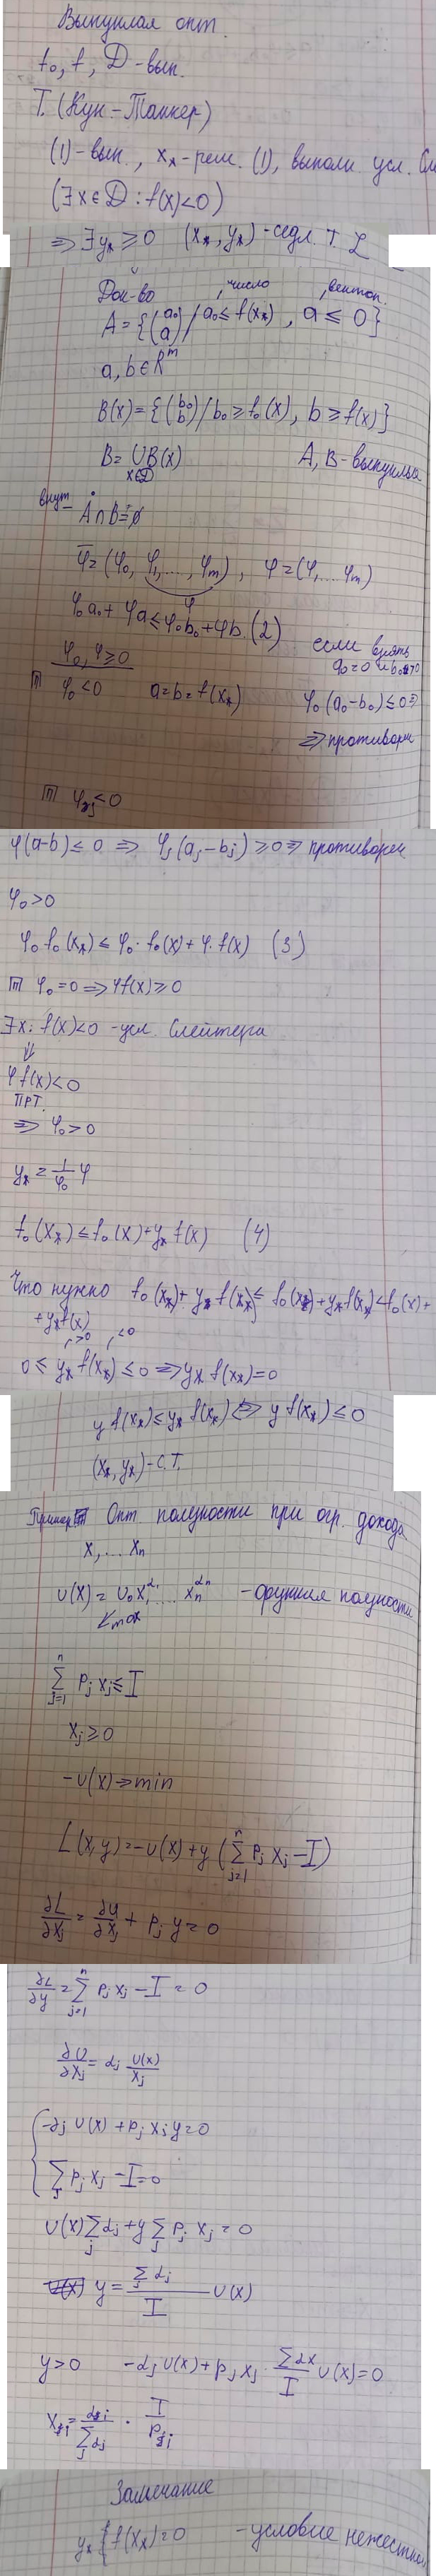 Выпуклая опт.
f₀, f, D - вып.
Т. (Кун - Таккер)
(1) - вып., x* - реш. (1), выполн усл. Сл
(∃x∈D : f(x)<0)
⇒ ∃y* ≥ 0 (x*, y*) - седл. т. L
Док-во , число , вектор.
A = {(a₀ a) / a₀ ≤ f(x*) , a ≤ 0}
a, b ∈ R^m
B(x) = {(b₀ b) / b₀ ≥ f₀(x), b ≥ f(x)}
B = ∪B(x) A, B - выпуклые
x∈D
внут - A∩B=∅
φ̄ = (φ₀, φ₁, ..., φm) , φ = (φ₁ ... φm)
φ
φ₀a₀ + φa ≤ φ₀b₀ + φb (2)
если взять
φ₀, φ ≥ 0
φ₀ < 0 a = b = f(x*) φ₀(a₀ - b₀) ≤ 0 ⇒
⇒ противореч
φⱼ < 0
φ(a-b) ≤ 0 ⇒ φⱼ(aⱼ - bⱼ) ≥ 0 ⇒ противореч
φ₀ > 0
φ₀ f₀(x*) ≤ φ₀ · f₀(x) + φ · f(x) (3)
φ₀ = 0 ⇒ φf(x) ≥ 0
∃x: f(x)<0 - усл. Слейтера
⇓
φ f(x) < 0
ПРТ.
⇒ φ₀ > 0
y* = 1/φ₀ φ
f₀(x*) ≤ f₀(x) + y* f(x) (4)
Что нужно f₀(x*) + y* f(x*) ≤ f₀(x*) + y* f(x*) ≤ f₀(x) +
+ y* f(x)
, >0 , <0
0 ≤ y* f(x*) ≤ 0 ⇒ y* f(x*) = 0
y f(x*) ≤ y* f(x*) ⇔ y f(x*) ≤ 0
(x*, y*) - С.Т.
Пример Опт. полезности при огр. дохода
x₁ ... xn
U(x) = U₀ x₁^α₁ ... xn^αn - функция полезности
max
Σ_{j=1}^{n} pⱼ xⱼ ≤ I
xⱼ ≥ 0
-U(x) → min
L(x,y) = -U(x) + y (Σ_{j=1}^{n} pⱼ xⱼ - I)
∂L/∂xⱼ = ∂U/∂xⱼ + pⱼ y = 0
∂L/∂y = Σ_{j=1}^{n} pⱼ xⱼ - I = 0
∂U/∂xⱼ = αⱼ U(x)/xⱼ
{ -αⱼ U(x) + pⱼ xⱼ y = 0
Σⱼ pⱼ xⱼ - I = 0
U(x) Σⱼ αⱼ + y Σⱼ pⱼ xⱼ = 0
y = Σⱼ αⱼ / I U(x)
y > 0 -αⱼ U(x) + pⱼ xⱼ · Σαx / I U(x) = 0
x*ⱼ = αⱼ / Σⱼ αⱼ · I / pⱼ
Замечание
y* f(x*) = 0 - условие нежестк